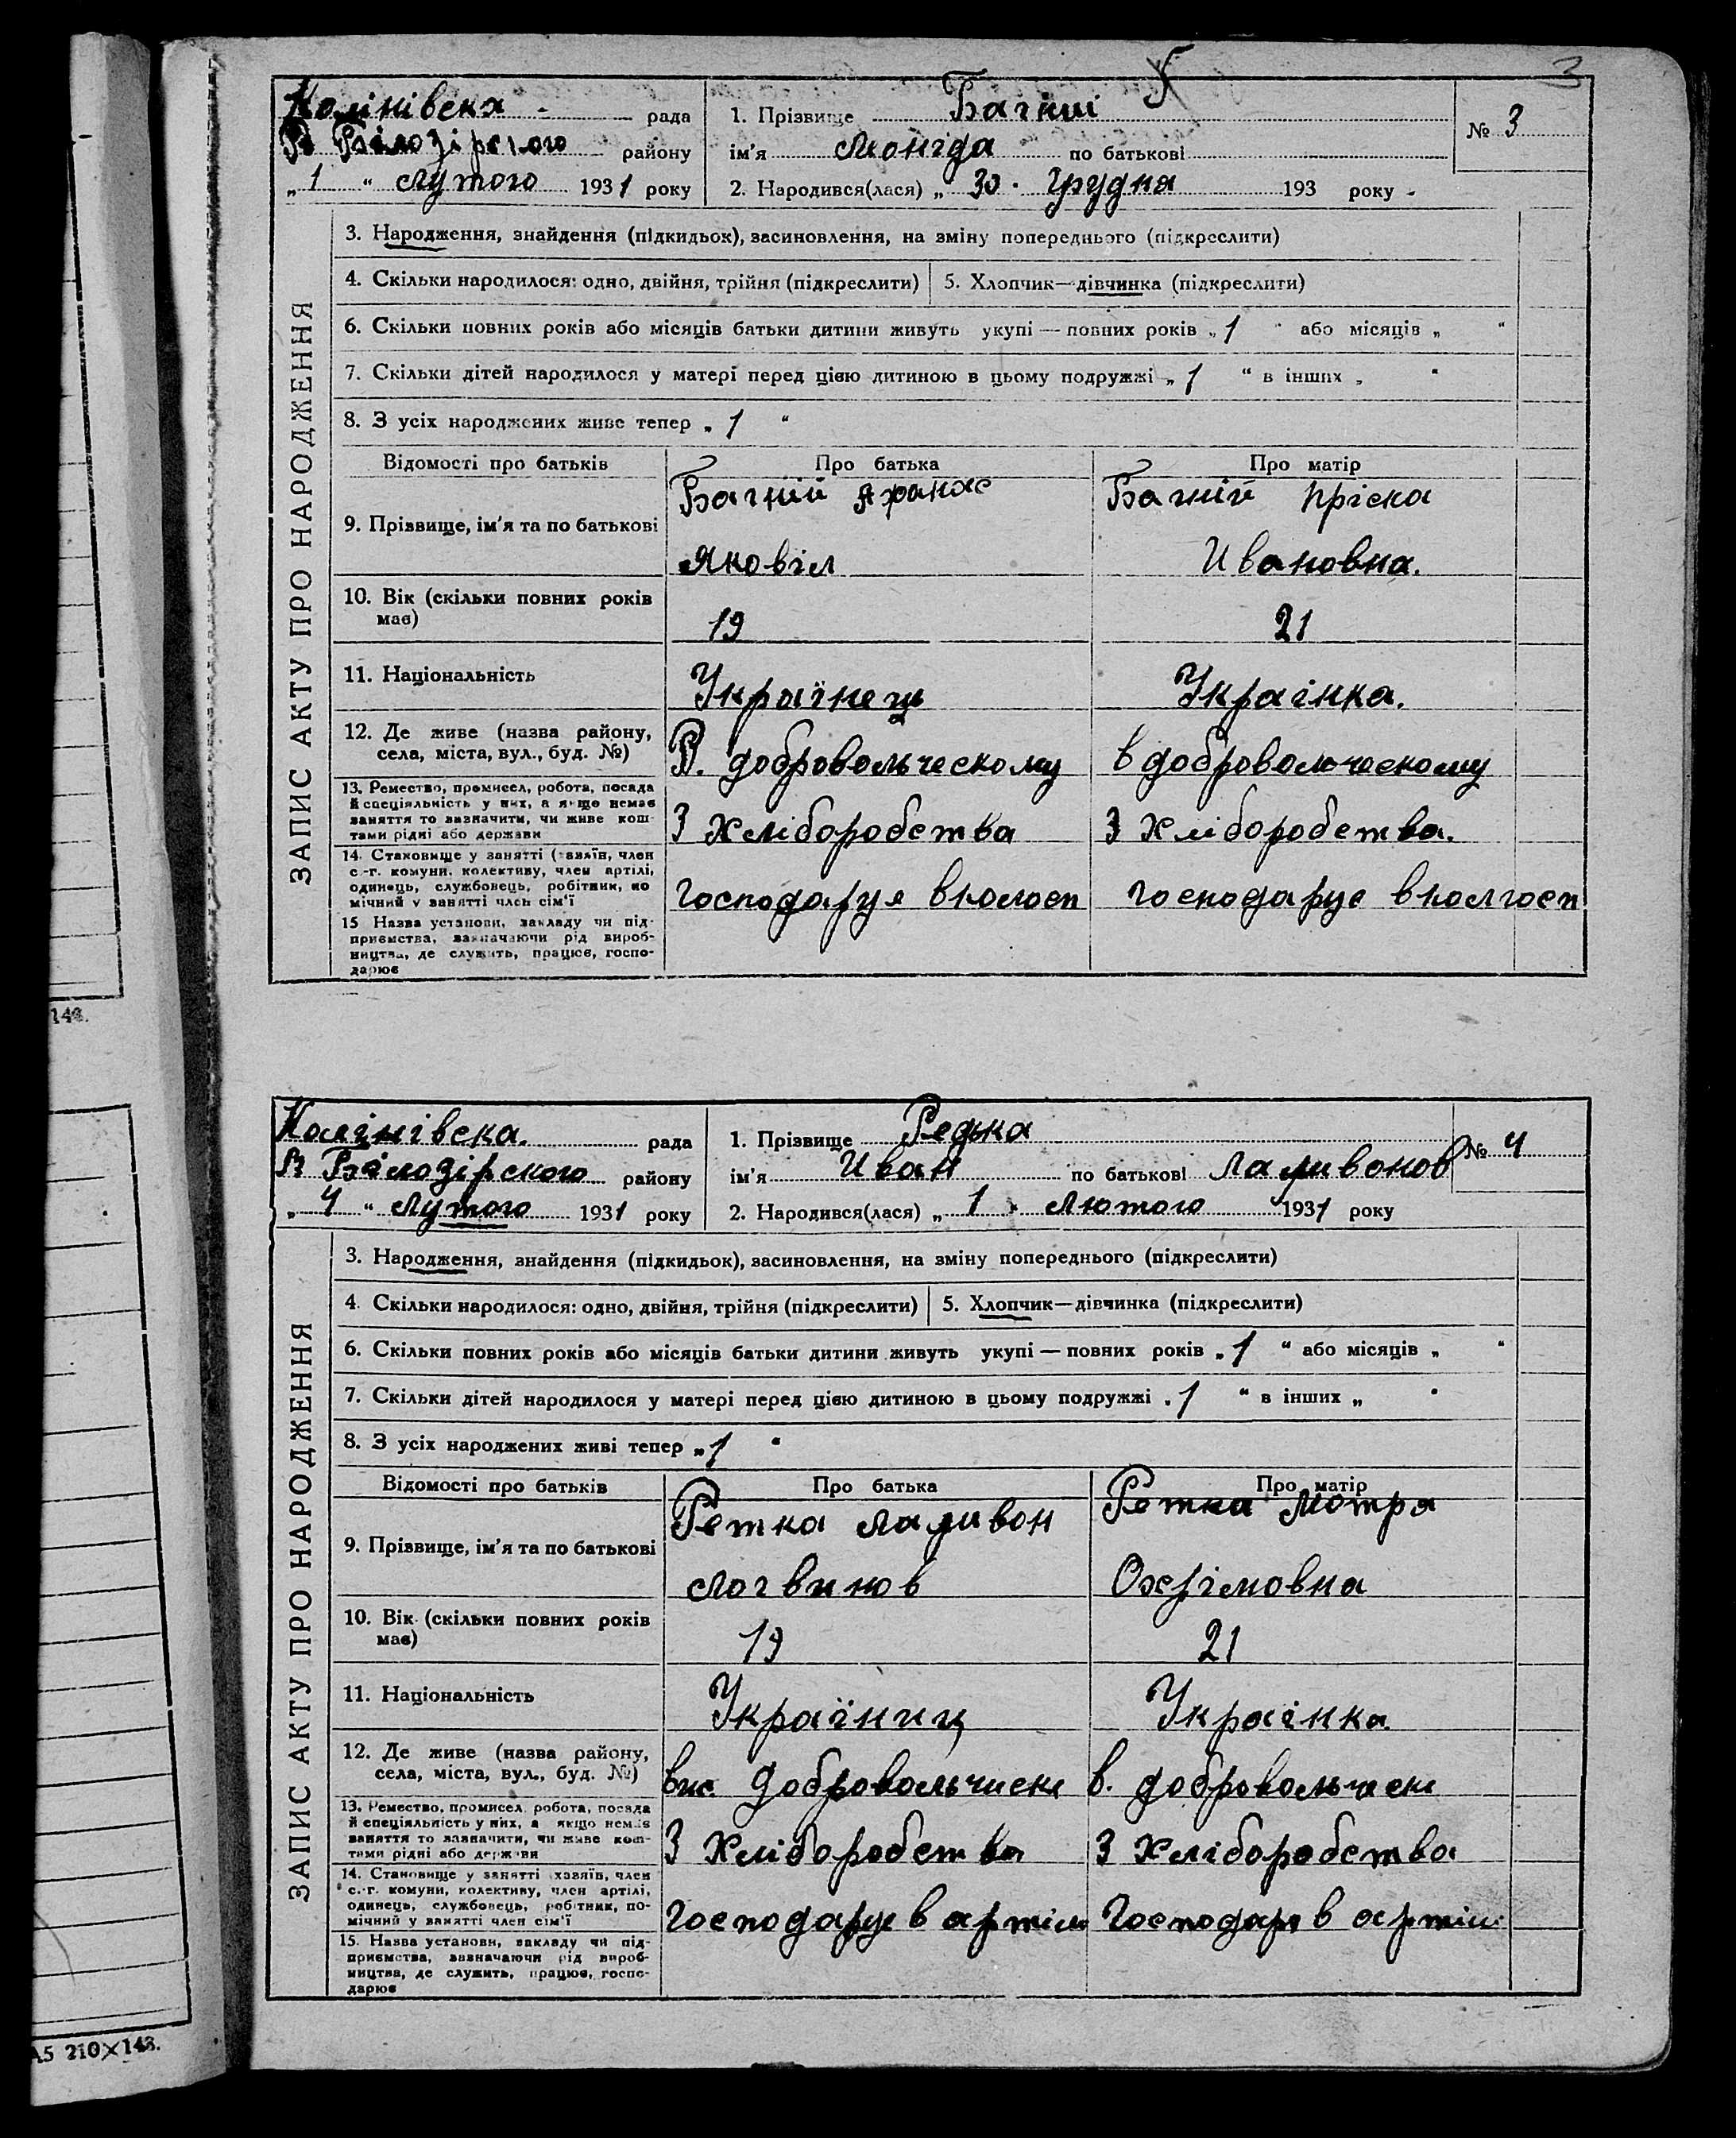 3
Калінівска рада
В Білозірского району
„ 1 “ Лутого 1931 року
1. Прізвище Багній
ім'я Леоніда по батькові
2. Народився(лася) „ 30 . Грудня 193 року
№ 3
ЗАПИС АКТУ ПРО НАРОДЖЕННЯ
3. Народження, знайдення (підкидьок), засиновлення, на зміну попереднього (підкреслити)
4. Скільки народилося: одно, двійня, трійня (підкреслити) 5. Хлопчик—дівчинка (підкреслити)
6. Скільки повних років або місяців батьки дитини живуть укупі — повних років „ 1 “ або місяців „ “
7. Скільки дітей народилося у матері перед цією дитиною в цьому подружжі „ 1 “ в інших „ “
8. З усіх народжених живе тепер „ 1 “
Відомості про батьків Про батька Про матір
9. Прізвище, ім'я та по батькові
Багній Афанас
Яковіл
Багній Пріска
Ивановна.
10. Вік (скільки повних років має) 19 21
11. Національність Українець Українка.
12. Де живе (назва району, села, міста, вул., буд. №) В. добровольческому в добровольческому
13. Ремество, промисел, робота, посада
й спеціяльність у них, а якщо немає
заняття то зазначити, чи живе кош-
тами рідні або держави
З Хліборобства З Хліборобства.
14. Становище у занятті (хазяїн, член
с.-г. комуни, колективу, член артілі,
одинець, службовець, робітник, по
мічний у занятті член сім'ї
господаруя в колосп господарує в колгосп
15 Назва установи, закладу чи під-
приємства, зазначаючи рід вироб-
ництва, де служить, працює, госпо-
дарює
148.
Калінівска. рада
В Білозірского району
„ 4 “ Лутого 1931 року
1. Прізвище Редька
ім'я Иван по батькові Ларивонов
2. Народився(лася) „ 1 . Лютого 1931 року
№ 4
ЗАПИС АКТУ ПРО НАРОДЖЕННЯ
3. Народження, знайдення (підкидьок), засиновлення, на зміну попереднього (підкреслити)
4. Скільки народилося: одно, двійня, трійня (підкреслити) 5. Хлопчик—дівчинка (підкреслити)
6. Скільки повних років або місяців батьки дитини живуть укупі — повних років „ 1 “ або місяців „ “
7. Скільки дітей народилося у матері перед цією дитиною в цьому подружжі „ 1 “ в інших „ “
8. З усіх народжених живі тепер „ 1 “
Відомості про батьків Про батька Про матір
9. Прізвище, ім'я та по батькові
Ретка Ларивон
Логвинов
Ретка Мотря
Охрімовна
10. Вік (скільки повних років має) 19 21
11. Національність Україниц Українка
12. Де живе (назва району, села, міста, вул., буд. №) в. добровольческ
13. Ремество, промисел, робота, посада
й спеціяльність у них, а якщо немає
заняття то зазначити, чи живе кош-
тами рідні або держави
З Хліборобства З Хліборобства
14. Становище у занятті хазяїн, член
с.-г. комуни, колективу, член артілі,
одинець, службовець, робітник, по-
мічний у занятті член сім'ї
Господарує в артіли Господаря в артіли
15. Назва установи, закладу чи під-
приємства, зазначаючи рід вироб-
ництва, де служить, працює, госпо-
дарює
А5 210×148.